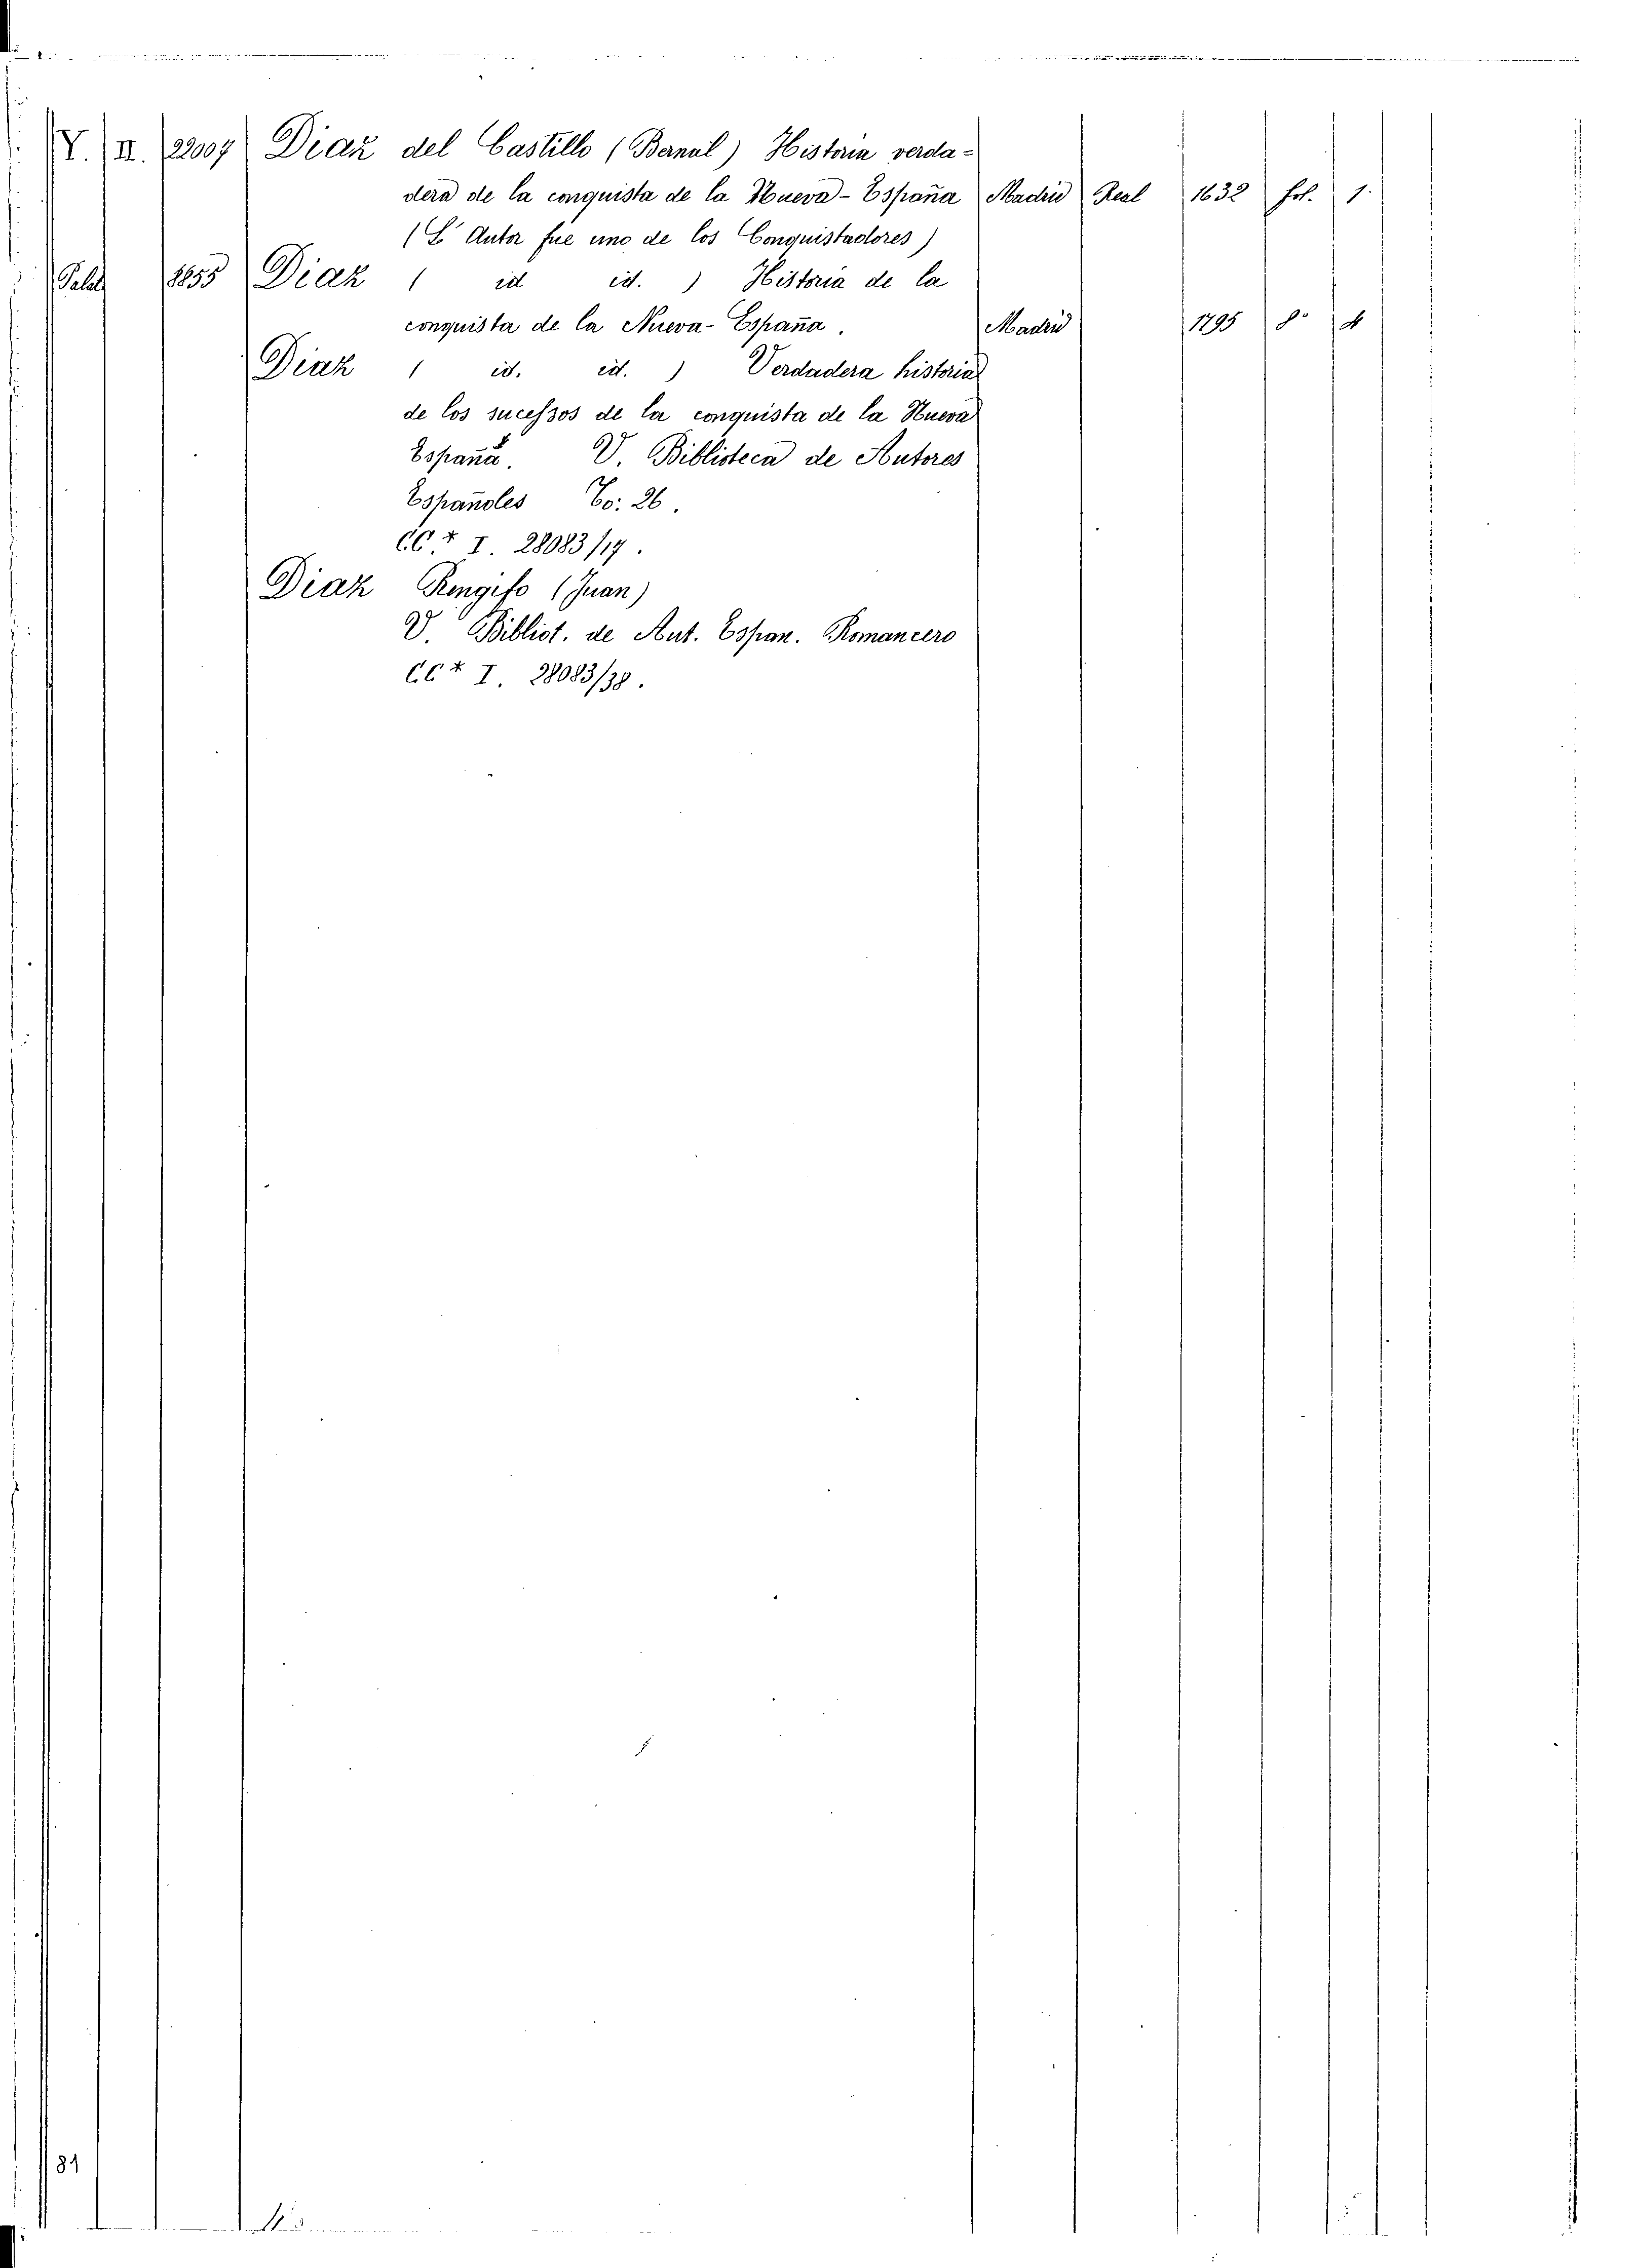 Y. II. 22007 Diaz del Castillo (Bernal) Historia verda-
dera de la conquista de la Nueva-España Madrid Real 1632 fol. 1.
(L' Autor fue uno de los Conquistadores)
Palat 1855 Diaz ( id id. ) Historia de la
conquista de la Nueva-España. Madrid 1795 8° 4
Diaz ( id. id. ) Verdadera historia
de los sucessos de la conquista de la Nueva
España. V. Biblioteca de Autores
Españoles To: 26.
CC.* I. 28083/17.
Diaz Rengifo (Juan)
V. Bibliot. de Aut. Espan. Romancero
CC* I. 28083/38.
81